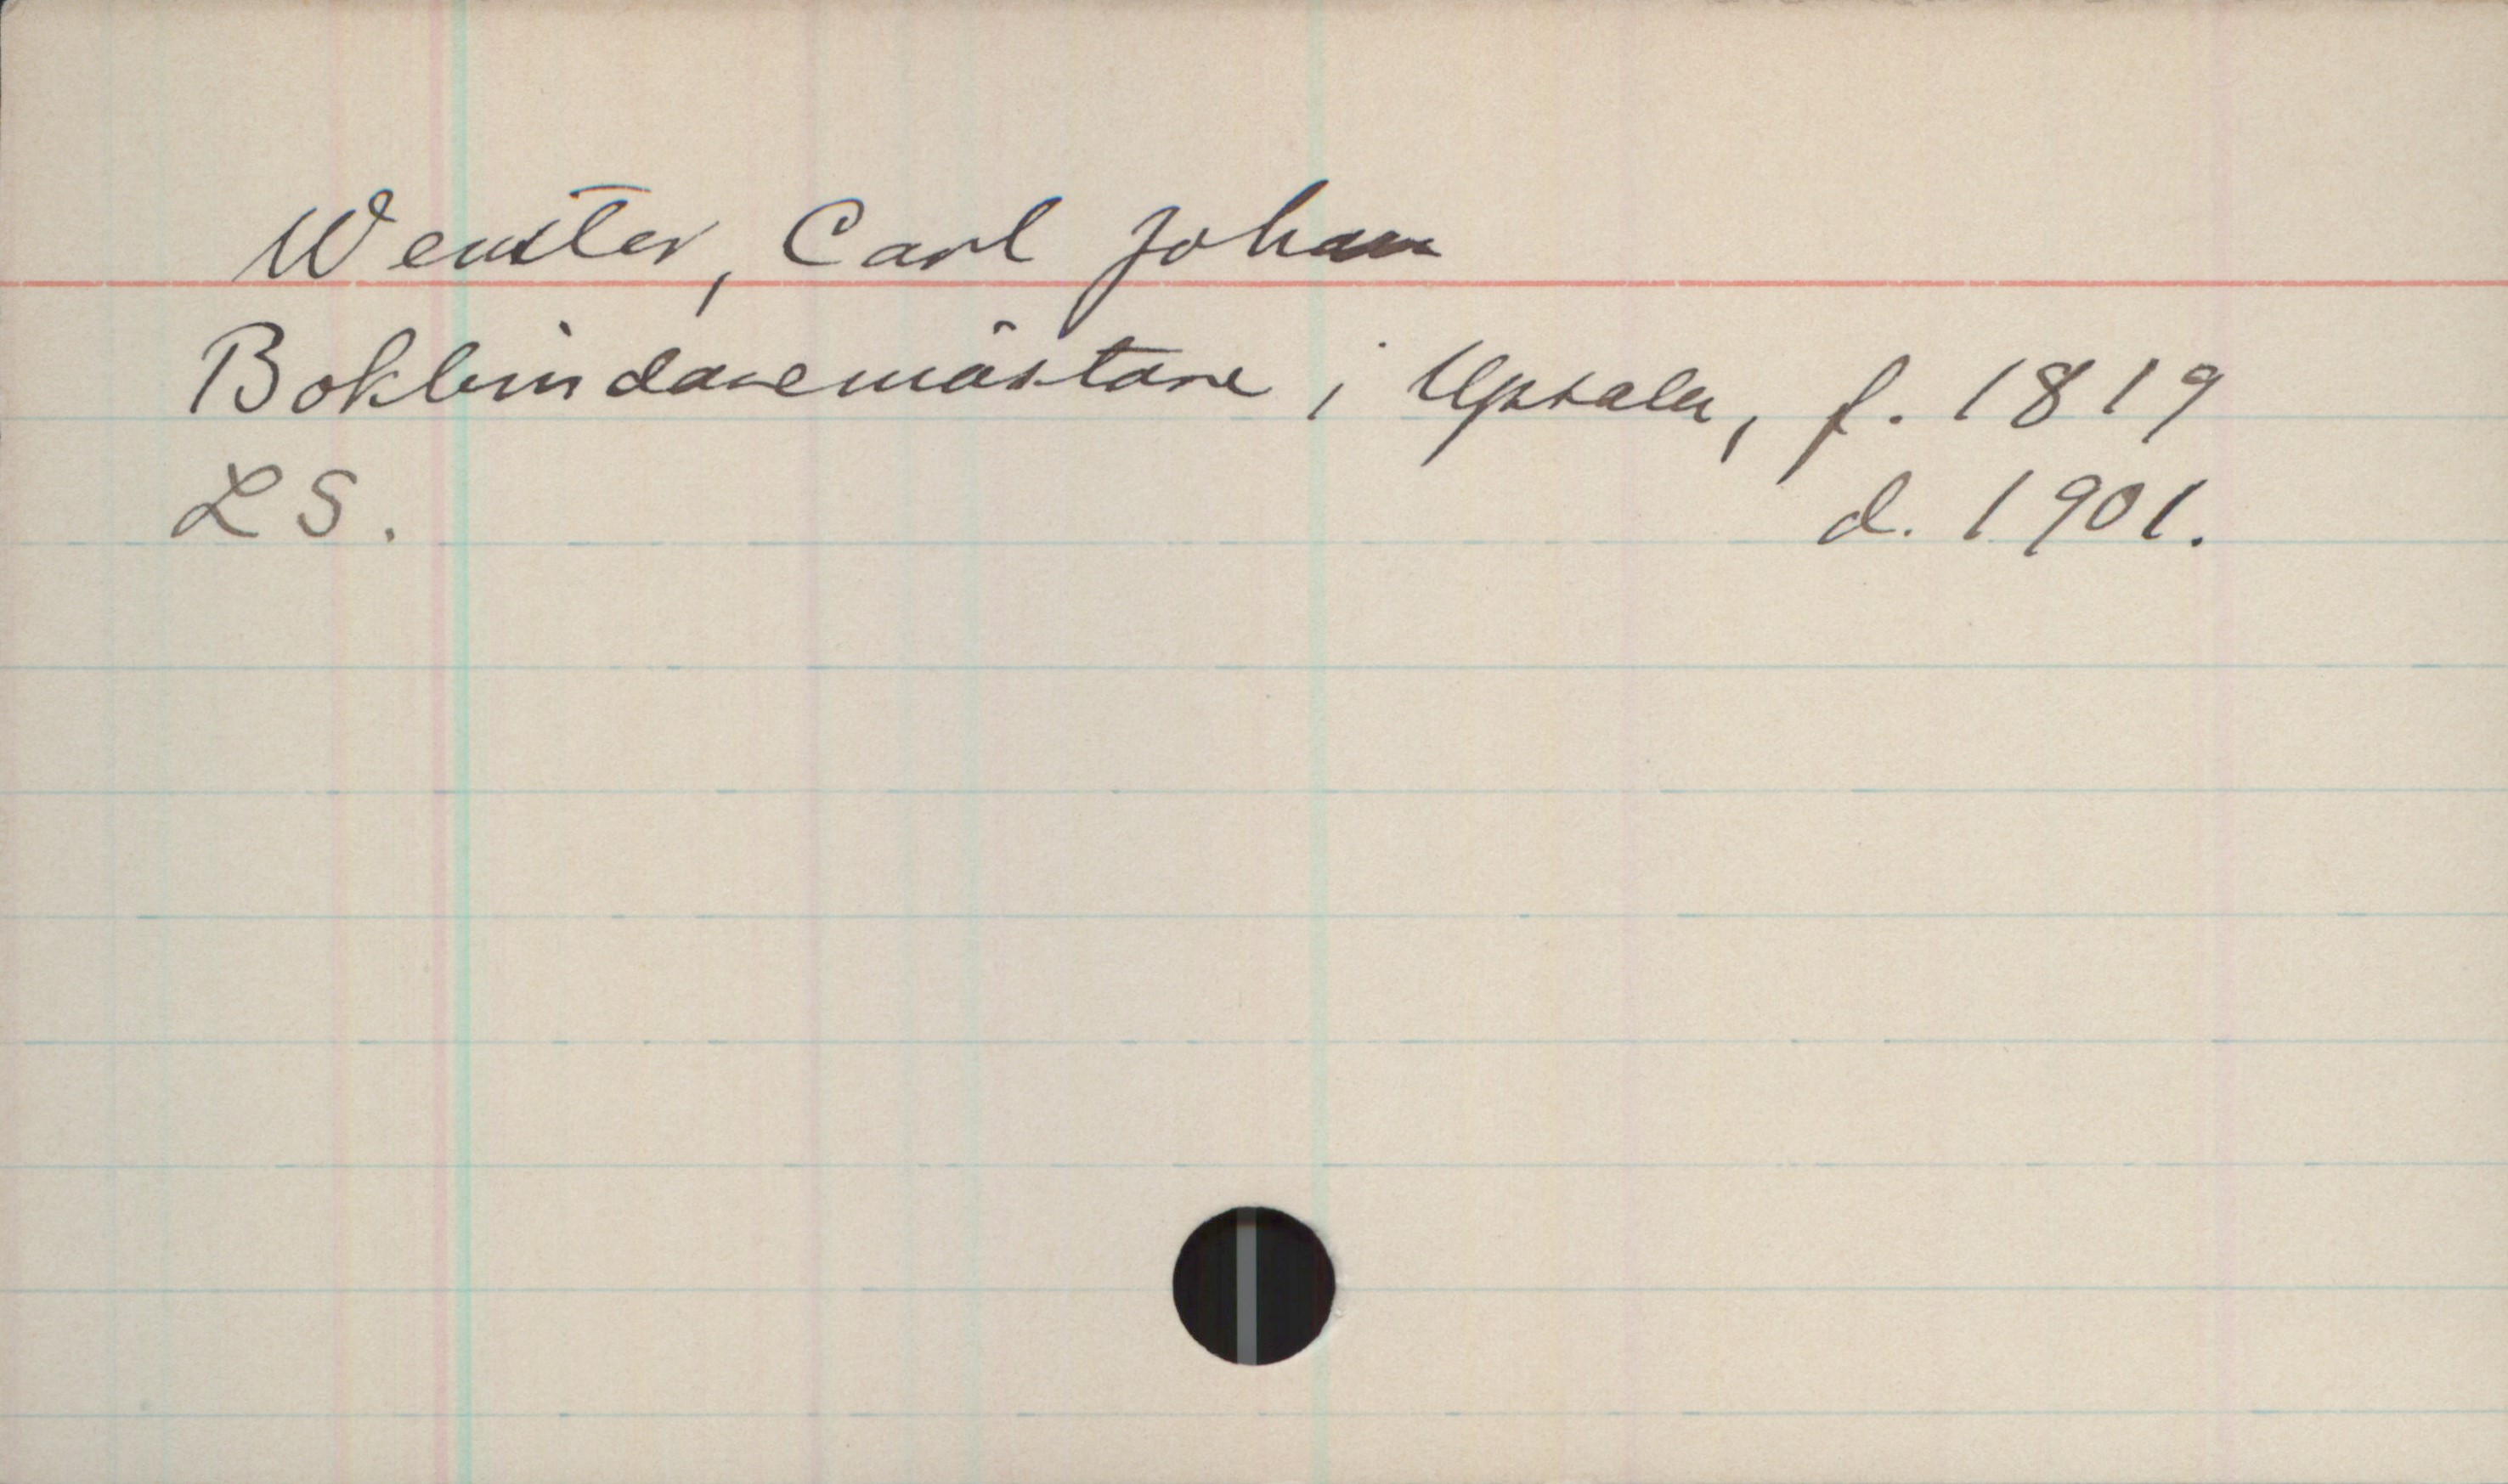 Wenster, Carl Johan
Bokbindaremästare i Upsala, f. 1819
LS. d. 1901.